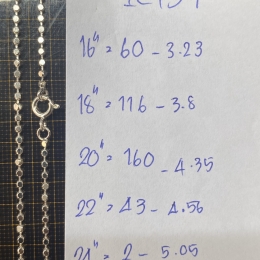 16" = 60 - 3.23
18" = 116 - 3.8
20" = 160 - 4.35
22" = 43 - 4.56
24" = 2 - 5.05